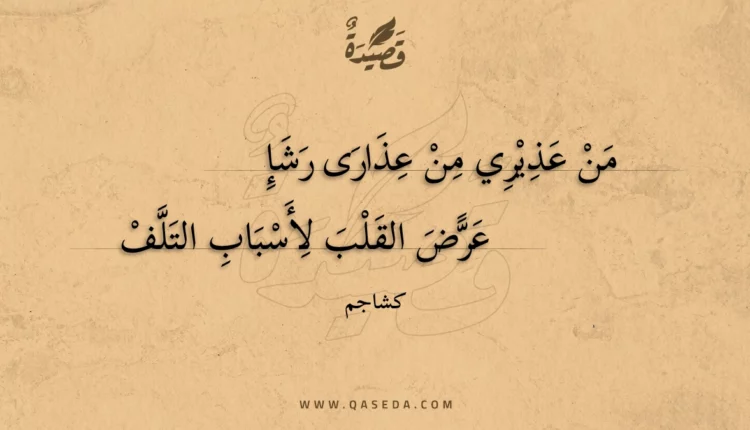 قَصِيدَةٌ
مَنْ عَذِيْرِي مِنْ عِذَارَى رَشَإٍ
عَرَّضَ القَلْبَ لِأَسْبَابِ التَلَّفْ
كشاجم
WWW.QASEDA.COM